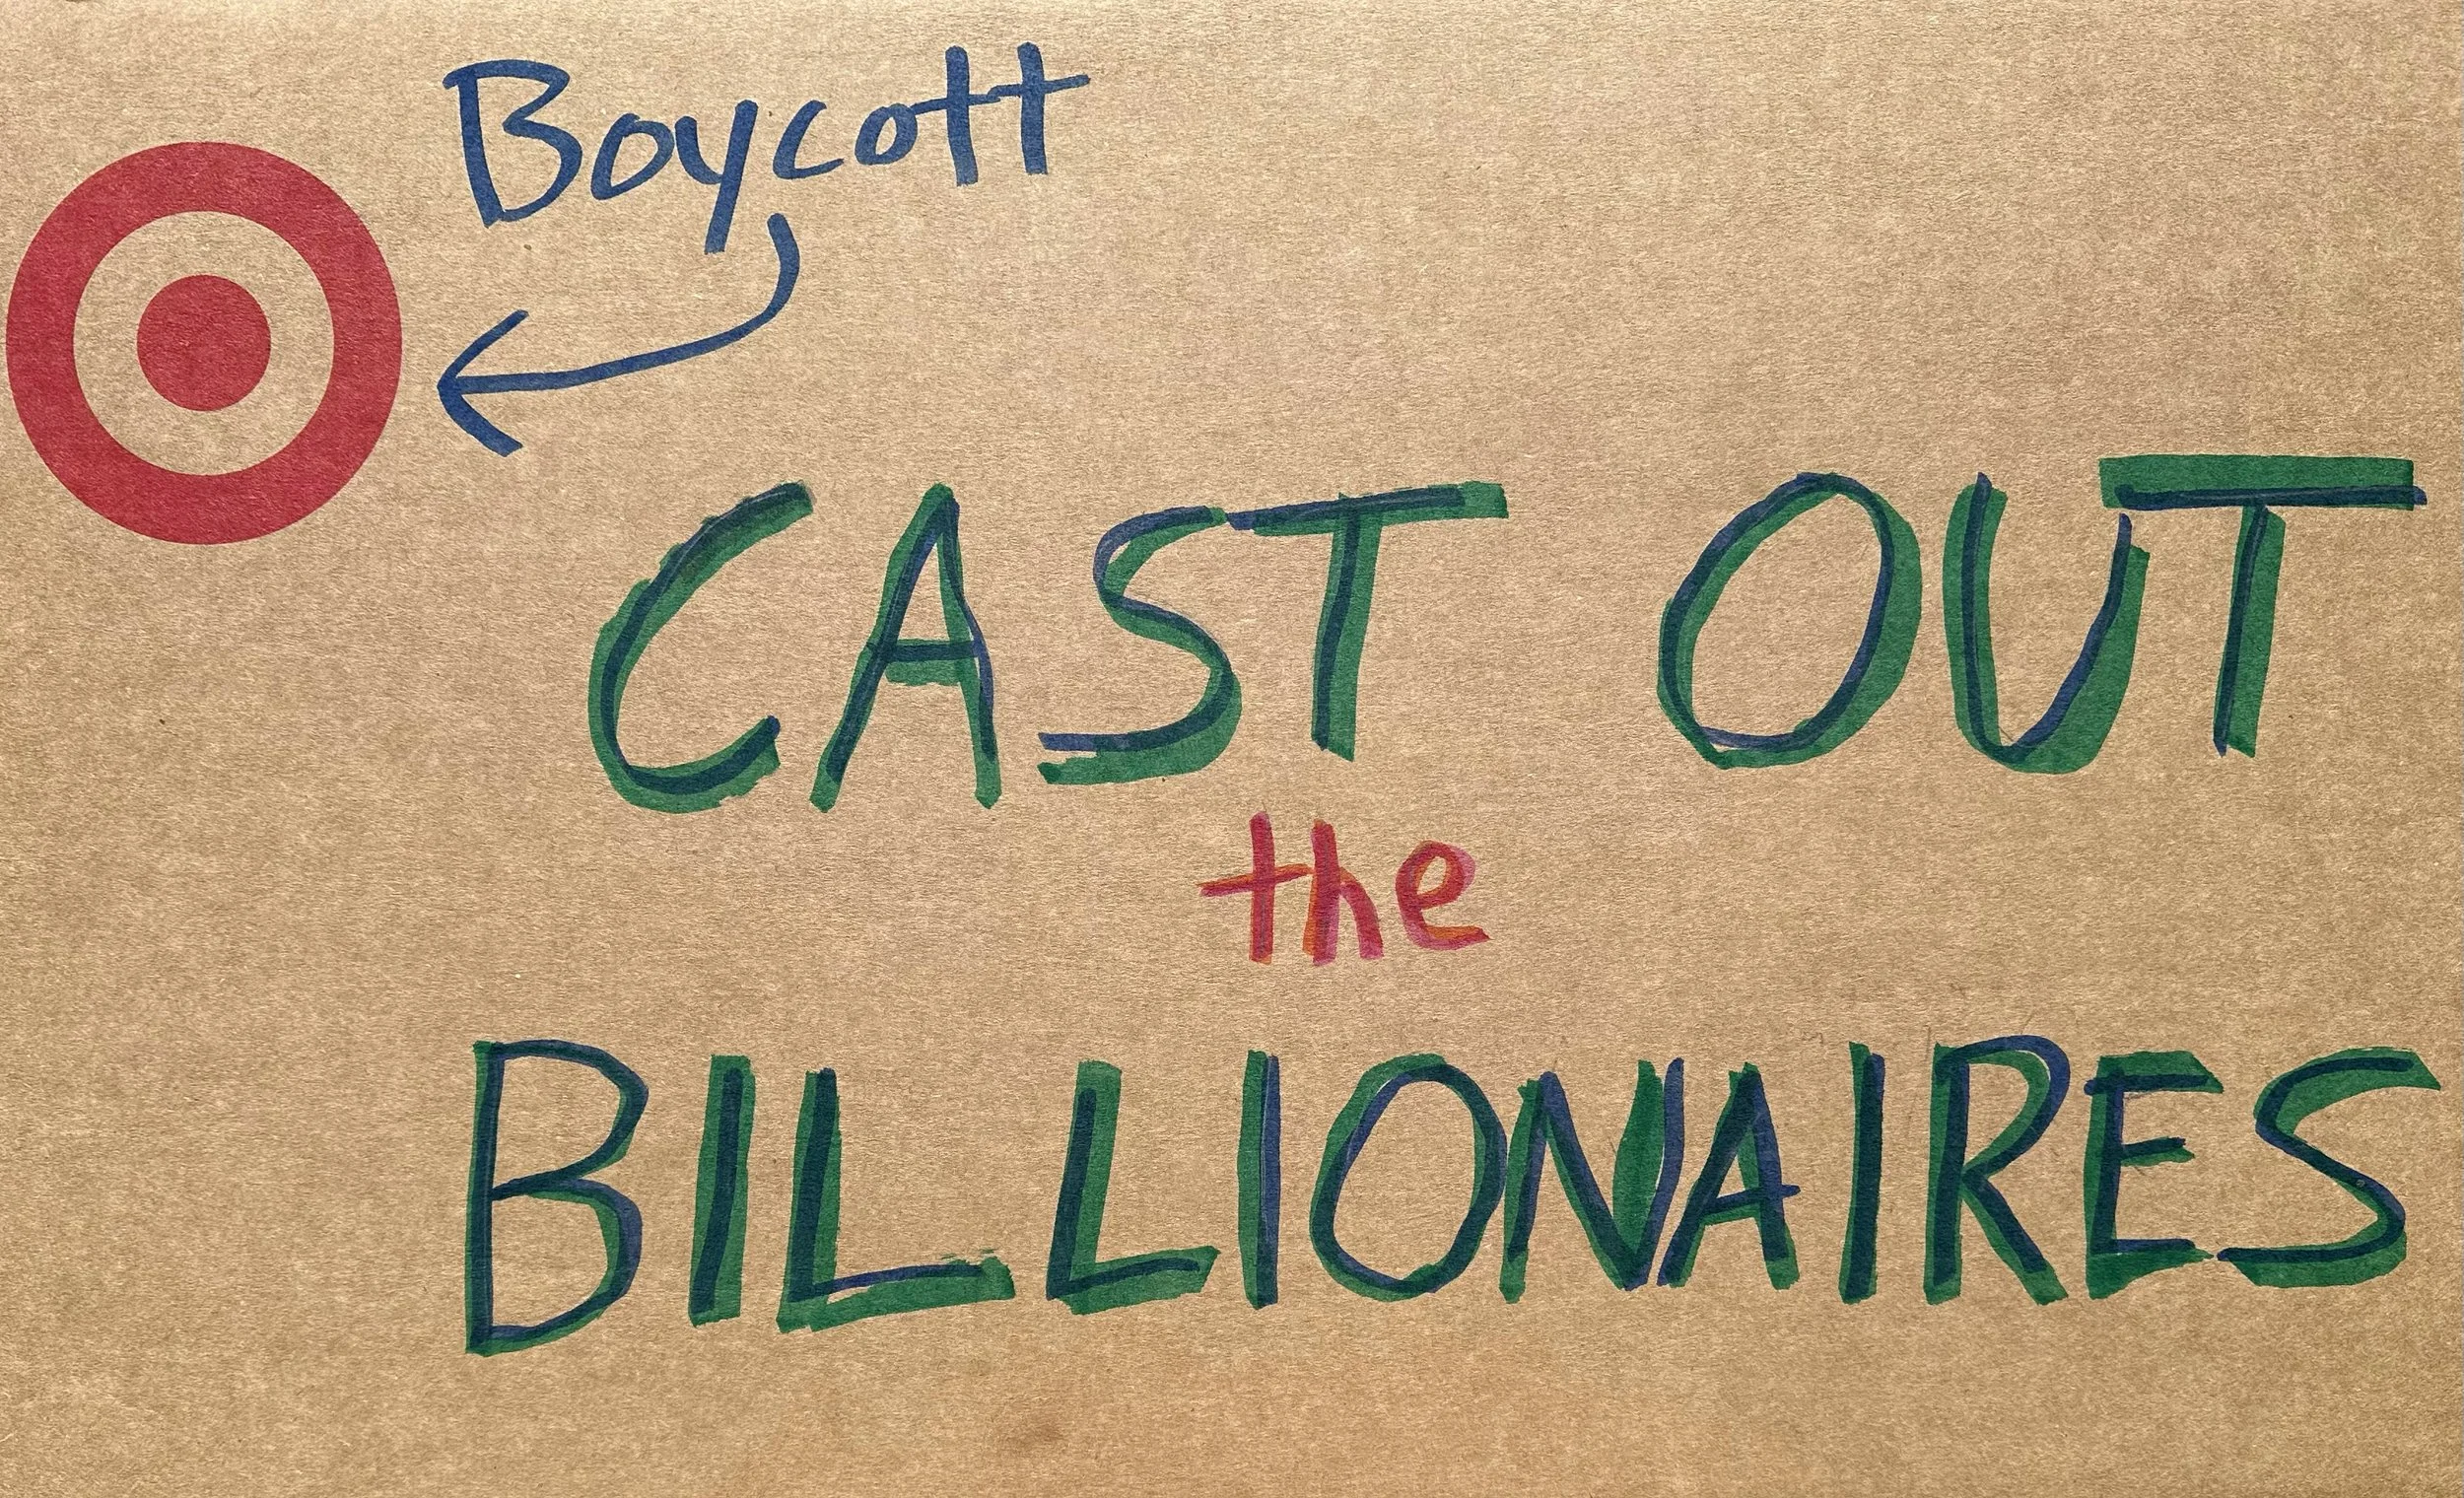 Boycott
CAST OUT
the
BILLIONAIRES